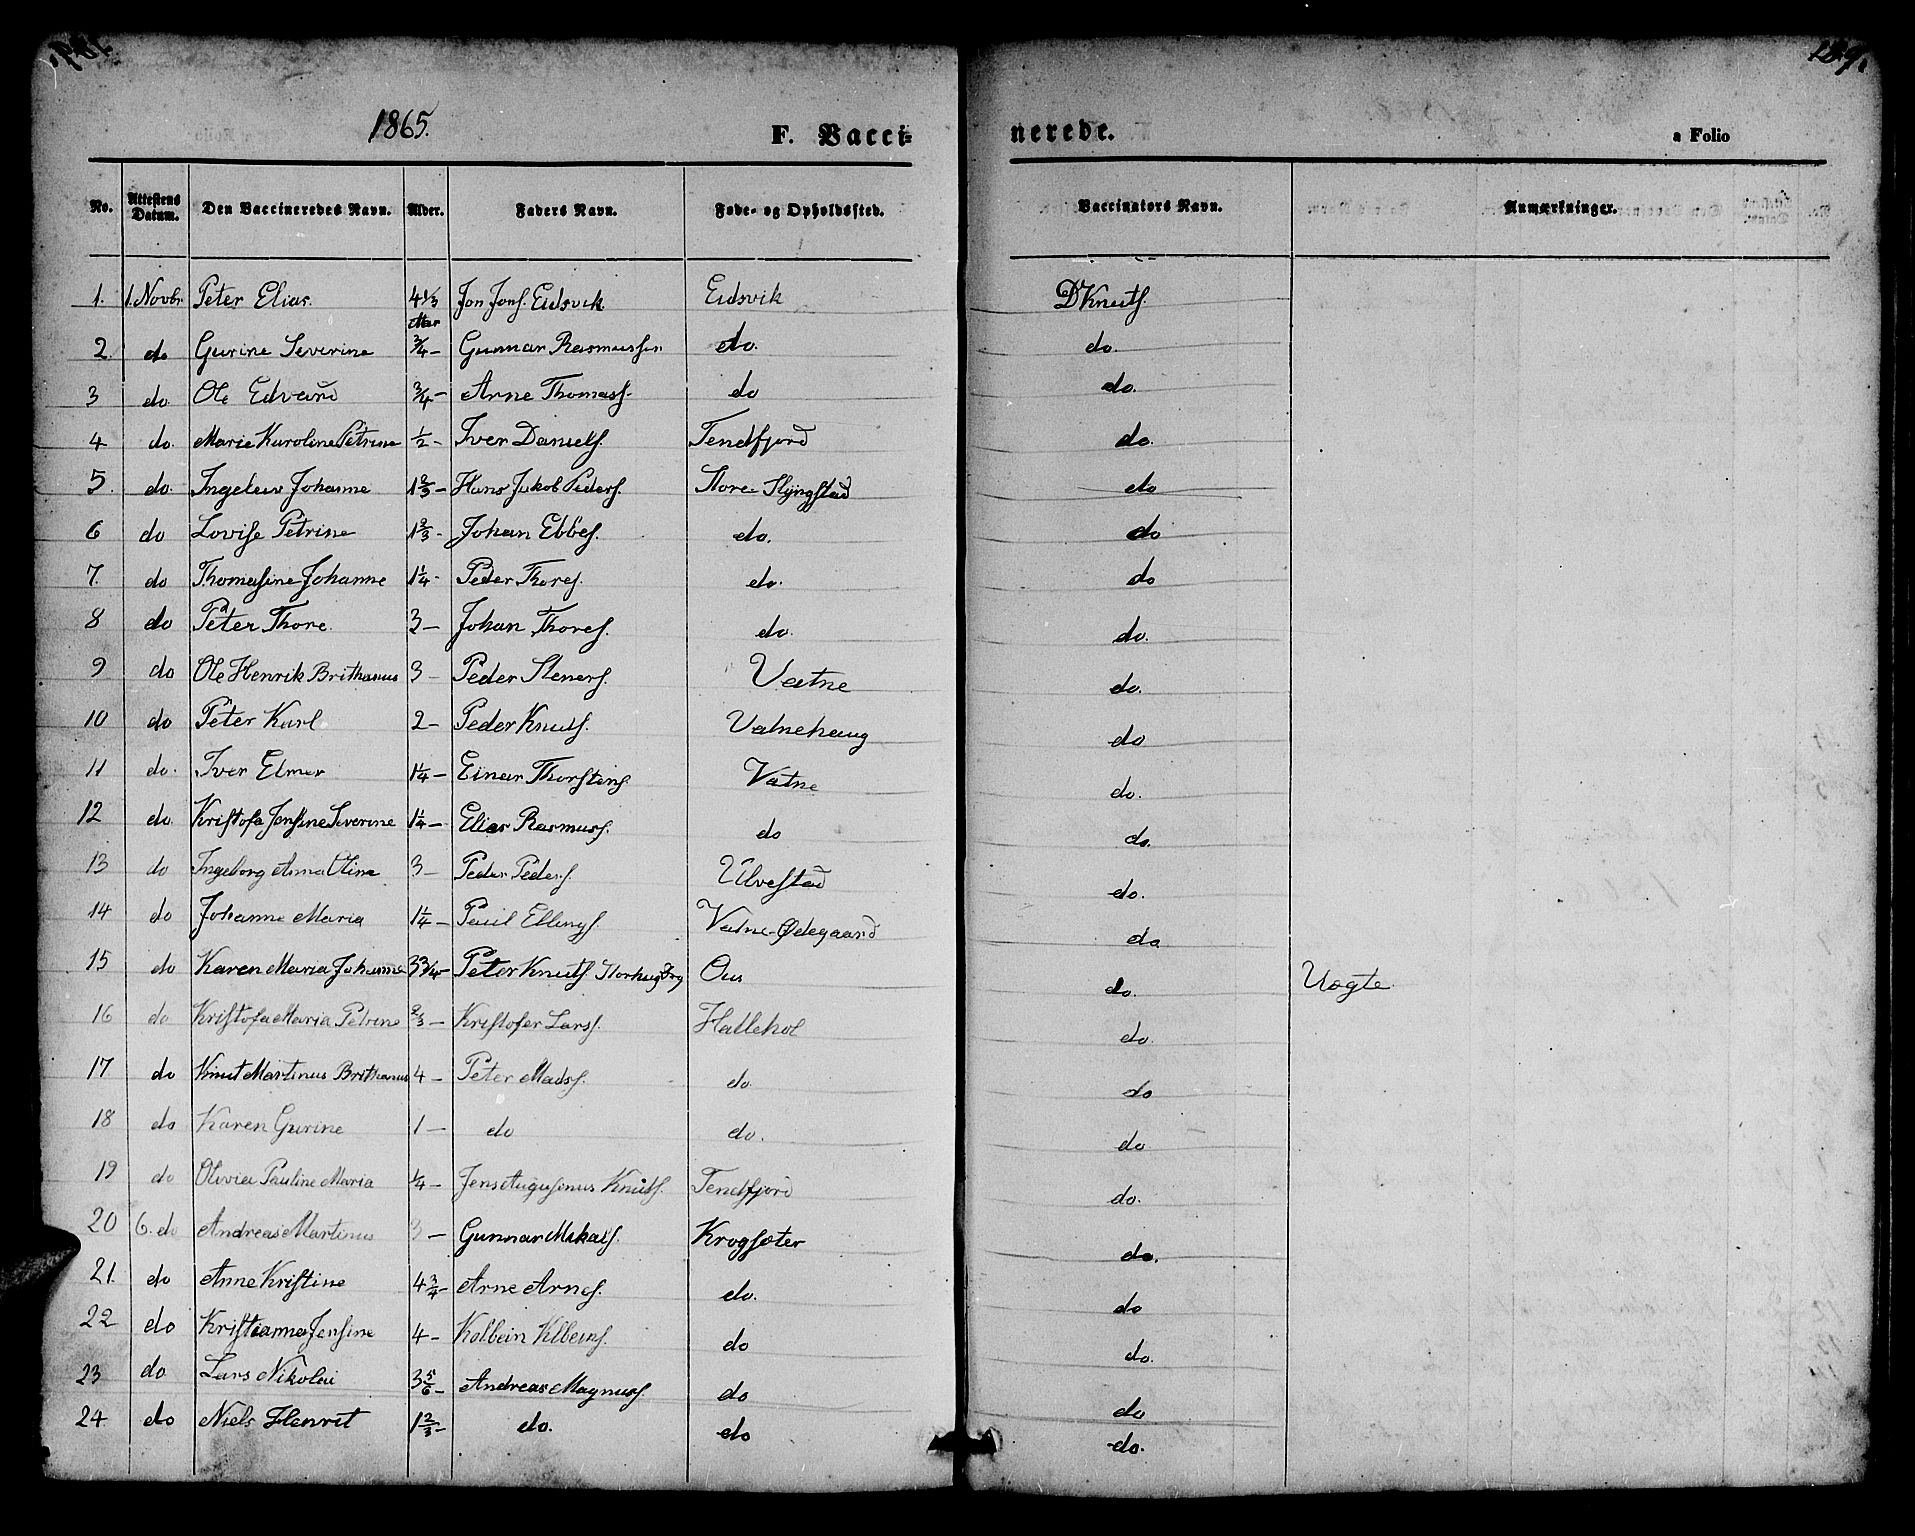 189.
1865.
F. Vacci=
nerede.
a Folio
No. Attestens Datum. Den Vaccineredes Navn. Alder. Faders Navn. Føde- og Opholdssted. Vaccinators Navn. Anmærkninger.
1. 1. Novbr. Peter Elias. 4 1/3 Aar Jon Jons. Eidsvik Eidsvik D Knuts.
2. do Gurine Severine 3/4 – Gunnar Rasmussen do. do.
3 do. Ole Edvard 3/4 – Arne Thomass. do do.
4 do. Marie Karoline Petrine 1/2 – Iver Daniels. Tendfjord do.
5. do. Ingeleiv Johanne 1 2/3 – Hans Jakob Peders. Store Slyngstad do
6 do Lovise Petrine 1 2/3 – Johan Ebbes. do. do
7. do Thomasine Johanne 1 1/4 – Peder Thores. do. do
8 do Peter Thore 3 – Johan Thores. do. do.
9 do Ole Henrik Brithanus 3 – Peder Steners. Vatne do.
10 do Peter Karl 2 – Peder Knuts. Vatnehaug do
11 do. Iver Elmer 1 1/4 – Einar Thorsteins. Vatne do.
12 do. Kristofa Jensine Severine 1 1/4 – Elias Rasmuss. do do.
13 do Ingeborg Anna Oline 3 – Peder Peders. Ulvestad do.
14 do Johanne Maria 1 1/4 – Paul Ellings. Vatne-Ødegaard do
15 do Karen Maria Johanne 3 3/4 – Peter Knuts. Storhug Ous do. Uægte
16 do Kristofa Maria Petrine 2/3 – Kristofer Larss. Hallehol do.
17 do Knut Martinus Brithanus 4 – Peter Madss. do. do
18 do Karen Gurine 1 – do do. do
19 do Olivia Pauline Maria 1/4 – Jens Augusinus Knuts. Tendfjord do.
20 6. do Andreas Martinus 3 – Gunnar Mikals. Krogsæter do.
21. do Anne Kristine 4 3/4 – Arne Arnes. do. do
22 do Kristianna Jensine 4 – Kolbein Klbeins. do do.
23 do Lars Nikolai 3 5/6 – Andreas Magnuss. do do
24. do Niels Henrik 1 2/3 – do. do do.